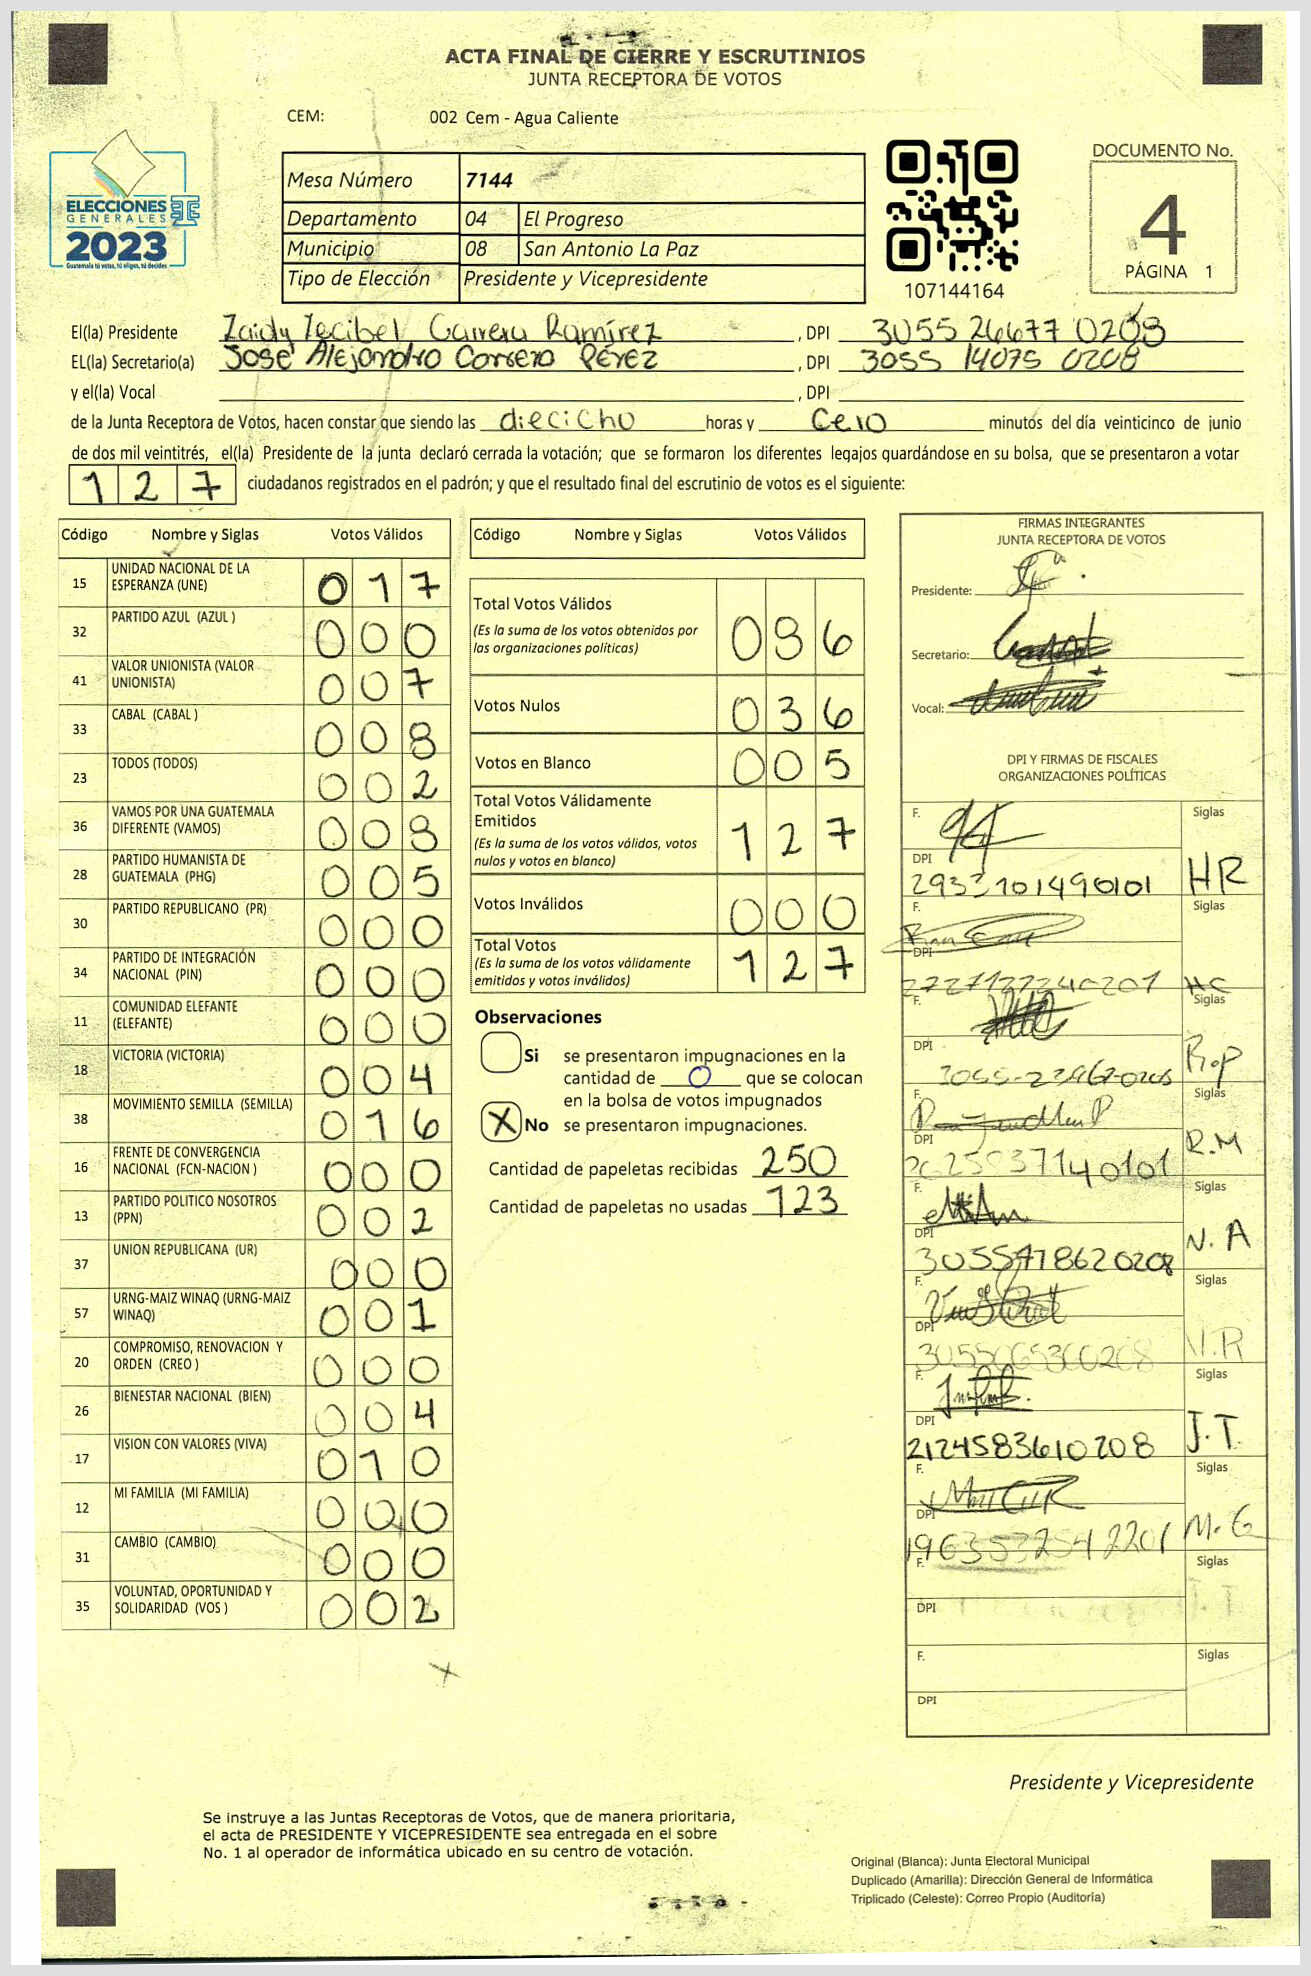 ACTA FINAL DE CIERRE Y ESCRUTINIOS
JUNTA RECEPTORA DE VOTOS
CEM: 002 Cem - Agua Caliente
ELECCIONES
GENERALES
2023
Guatemala tú votas, tú eliges, tú decides
Mesa Número 7144
Departamento 04 El Progreso
Municipio 08 San Antonio La Paz
Tipo de Elección Presidente y Vicepresidente
107144164
DOCUMENTO No.
4
PÁGINA 1
El(la) Presidente Zaidy Carrera Ramírez , DPI 3055 26677 0208
EL(la) Secretario(a) José Alejandro Carrera Pérez , DPI 3055 14075 0208
y el(la) Vocal , DPI
de la Junta Receptora de Votos, hacen constar que siendo las diecicho horas y Cero minutos del día veinticinco de junio
de dos mil veintitrés, el(la) Presidente de la junta declaró cerrada la votación; que se formaron los diferentes legajos guardándose en su bolsa, que se presentaron a votar
127 ciudadanos registrados en el padrón; y que el resultado final del escrutinio de votos es el siguiente:
Código Nombre y Siglas Votos Válidos
15 UNIDAD NACIONAL DE LA ESPERANZA (UNE) 017
32 PARTIDO AZUL (AZUL ) 000
41 VALOR UNIONISTA (VALOR UNIONISTA) 007
33 CABAL (CABAL ) 008
23 TODOS (TODOS) 002
36 VAMOS POR UNA GUATEMALA DIFERENTE (VAMOS) 008
28 PARTIDO HUMANISTA DE GUATEMALA (PHG) 005
30 PARTIDO REPUBLICANO (PR) 000
34 PARTIDO DE INTEGRACIÓN NACIONAL (PIN) 000
11 COMUNIDAD ELEFANTE (ELEFANTE) 000
18 VICTORIA (VICTORIA) 004
38 MOVIMIENTO SEMILLA (SEMILLA) 016
16 FRENTE DE CONVERGENCIA NACIONAL (FCN-NACION ) 000
13 PARTIDO POLITICO NOSOTROS (PPN) 002
37 UNION REPUBLICANA (UR) 000
57 URNG-MAIZ WINAQ (URNG-MAIZ WINAQ) 001
20 COMPROMISO, RENOVACION Y ORDEN (CREO ) 000
26 BIENESTAR NACIONAL (BIEN) 004
17 VISION CON VALORES (VIVA) 010
12 MI FAMILIA (MI FAMILIA) 000
31 CAMBIO (CAMBIO) 000
35 VOLUNTAD, OPORTUNIDAD Y SOLIDARIDAD (VOS ) 002
Código Nombre y Siglas Votos Válidos
Total Votos Válidos 086
(Es la suma de los votos obtenidos por
las organizaciones políticas)
Votos Nulos 036
Votos en Blanco 005
Total Votos Válidamente
Emitidos 127
(Es la suma de los votos válidos, votos
nulos y votos en blanco)
Votos Inválidos 000
Total Votos 127
(Es la suma de los votos válidamente
emitidos y votos inválidos)
Observaciones
Si se presentaron impugnaciones en la
cantidad de 0 que se colocan
en la bolsa de votos impugnados
X No se presentaron impugnaciones.
Cantidad de papeletas recibidas 250
Cantidad de papeletas no usadas 123
FIRMAS INTEGRANTES
JUNTA RECEPTORA DE VOTOS
Presidente:
Secretario:
Vocal:
DPI Y FIRMAS DE FISCALES
ORGANIZACIONES POLÍTICAS
F. Siglas
DPI 2933101490101 HR
F. Siglas
DPI
Siglas
DPI R.P
F. Siglas
DPI R.M
F. Siglas
DPI N.A
F. Siglas
DPI 3055065300208 V.R
F. Siglas
DPI 2124583610208 J.T.
F. Siglas
DPI 1963532542201 M.G
F. Siglas
DPI
F. Siglas
DPI
Presidente y Vicepresidente
Se instruye a las Juntas Receptoras de Votos, que de manera prioritaria,
el acta de PRESIDENTE Y VICEPRESIDENTE sea entregada en el sobre
No. 1 al operador de informática ubicado en su centro de votación.
Original (Blanca): Junta Electoral Municipal
Duplicado (Amarilla): Dirección General de Informática
Triplicado (Celeste): Correo Propio (Auditoría)